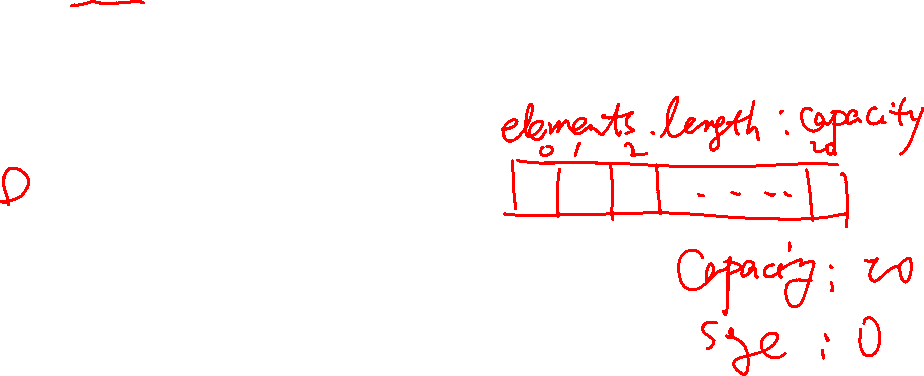 elements.length : capacity
0 1 2 20
D
- - - -
Capacity : 20
Size : 0